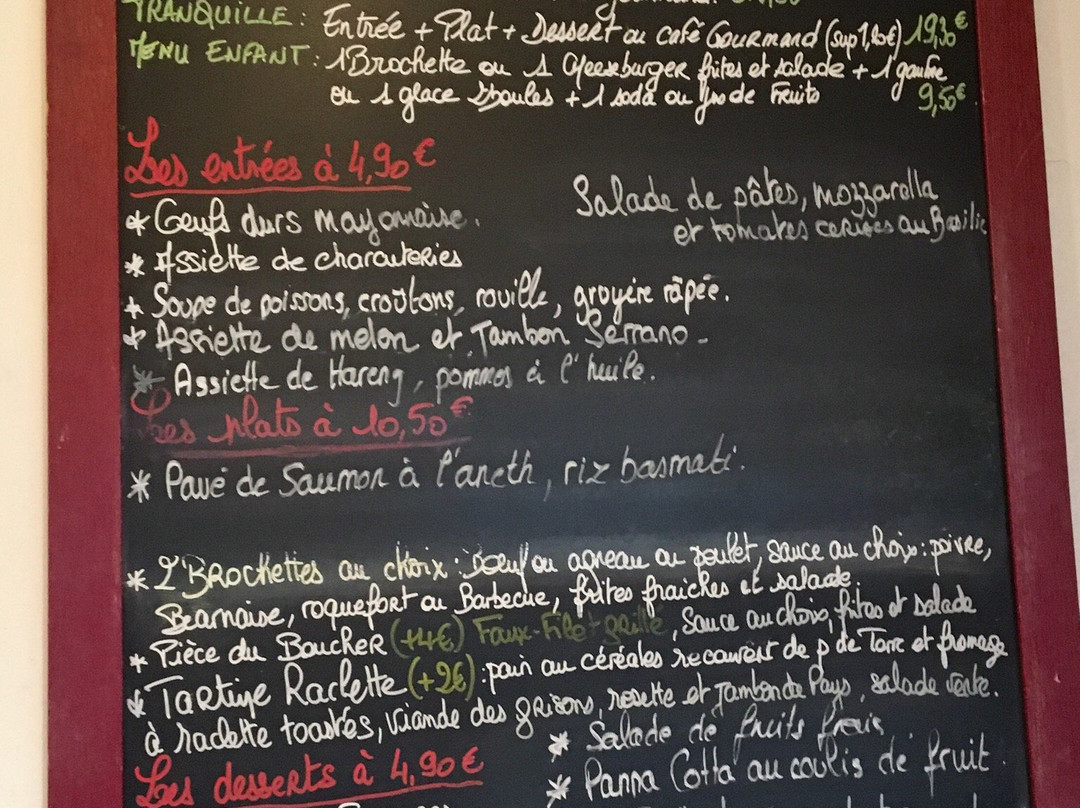 TRANQUILLE : Entrée + Plat + Dessert ou café Gourmand (sup 1,80€) 19,30€
MENU ENFANT : 1 Brochette ou 1 Cheeseburger frites et salade + 1 gaufre
ou 1 glace 2 boules + 1 soda ou Jus de Fruits 9,50€
Les entrées à 4,90€
* Oeufs durs mayonnaise.
Salade de pâtes, mozzarella
et tomates cerises au Basilic
* Assiette de charcuteries
* Soupe de poissons, croûtons, rouille, gruyère râpée.
* Assiette de melon et Jambon Serrano -
* Assiette de Hareng, pommes à l'huile.
Les plats à 10,50€
* Pavé de Saumon à l'aneth, riz basmati.
* 2 Brochettes au choix : Boeuf ou agneau ou poulet, sauce au choix : poivre,
Bearnaise, roquefort ou Barbecue, frites fraiches et salade.
* Pièce du Boucher (+4€) Faux-Filet grillé, Sauce au choix, frites et salade
* Tartine Raclette (+2€) : pain au céréales recouvert de p de Terre et fromage
à raclette toastés, viande des grisons, rosette et jambon de Pays, salade verte.
* Salade de fruits frais
Les desserts à 4,90€
* Panna Cotta au coulis de fruit.